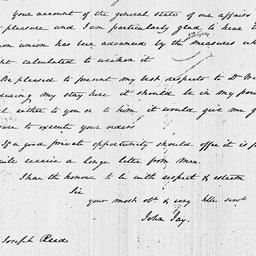 Your account of the general state of our affairs
pleasure and I am particularly glad to hear t
on union has been advanced by the measures wh
nt calculated to weaken it
Be pleased to present my best respects to Dr
during my stay here it should be in my pow
either to you or to him, it would give me g
sure to execute your orders
If a good private opportunity should offer it is p
will receive a longer letter from me.
I have the honour to be with respect & esteem
Sir
your most obt & very hble servt
John Jay.
Joseph Reed